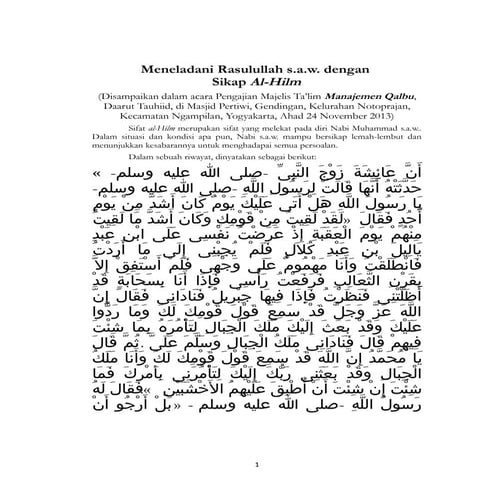 Meneladani Rasulullah s.a.w. dengan
Sikap Al-Hilm
(Disampaikan dalam acara Pengajian Majelis Ta'lim Manajemen Qalbu,
Daarut Tauhiid, di Masjid Pertiwi, Gendingan, Kelurahan Notoprajan,
Kecamatan Ngampilan, Yogyakarta, Ahad 24 November 2013)
Sifat al-Hilm merupakan sifat yang melekat pada diri Nabi Muhammad s.a.w..
Dalam situasi dan kondisi apa pun, Nabi s.a.w. mampu bersikap lemah-lembut dan
menunjukkan kesabarannya untuk menghadapai semua persoalan.
Dalam sebuah riwayat, dinyatakan sebagai berikut:
أَنَّ عَائِشَةَ زَوْجَ النَّبِىِّ -صلى الله عليه وسلم- «
حَدَّثَتْهُ أَنَّهَا قَالَتْ لِرَسُولِ اللَّهِ -صلى الله عليه وسلم-
يَا رَسُولَ اللَّهِ هَلْ أَتَى عَلَيْكَ يَوْمٌ كَانَ أَشَدَّ مِنْ يَوْمِ
أُحُدٍ فَقَالَ »لَقَدْ لَقِيتُ مِنْ قَوْمِكِ وَكَانَ أَشَدَّ مَا لَقِيتُ
مِنْهُمْ يَوْمَ الْعَقَبَةِ إِذْ عَرَضْتُ نَفْسِى عَلَى ابْنِ عَبْدِ
يَالِيلَ بْنِ عَبْدِ كُلاَلٍ فَلَمْ يُجِبْنِى إِلَى مَا أَرَدْتُ
فَانْطَلَقْتُ وَأَنَا مَهْمُومٌ عَلَى وَجْهِى فَلَمْ أَسْتَفِقْ إِلاَّ
بِقَرْنِ الثَّعَالِبِ فَرَفَعْتُ رَأْسِى فَإِذَا أَنَا بِسَحَابَةٍ قَدْ
أَظَلَّتْنِى فَنَظَرْتُ فَإِذَا فِيهَا جِبْرِيلُ فَنَادَانِى فَقَالَ إِنَّ
اللَّهَ عَزَّ وَجَلَّ قَدْ سَمِعَ قَوْلَ قَوْمِكَ لَكَ وَمَا رَدُّوا
عَلَيْكَ وَقَدْ بَعَثَ إِلَيْكَ مَلَكَ الْجِبَالِ لِتَأْمُرَهُ بِمَا شِئْتَ
فِيهِمْ قَالَ فَنَادَانِى مَلَكُ الْجِبَالِ وَسَلَّمَ عَلَىَّ ثُمَّ قَالَ
يَا مُحَمَّدُ إِنَّ اللَّهَ قَدْ سَمِعَ قَوْلَ قَوْمِكَ لَكَ وَأَنَا مَلَكُ
الْجِبَالِ وَقَدْ بَعَثَنِى رَبُّكَ إِلَيْكَ لِتَأْمُرَنِى بِأَمْرِكَ فَمَا
شِئْتَ إِنْ شِئْتَ أَنْ أُطْبِقَ عَلَيْهِمُ الأَخْشَبَيْنِ «فَقَالَ لَهُ
رَسُولُ اللَّهِ -صلى الله عليه وسلم - »بَلْ أَرْجُو أَنْ
1